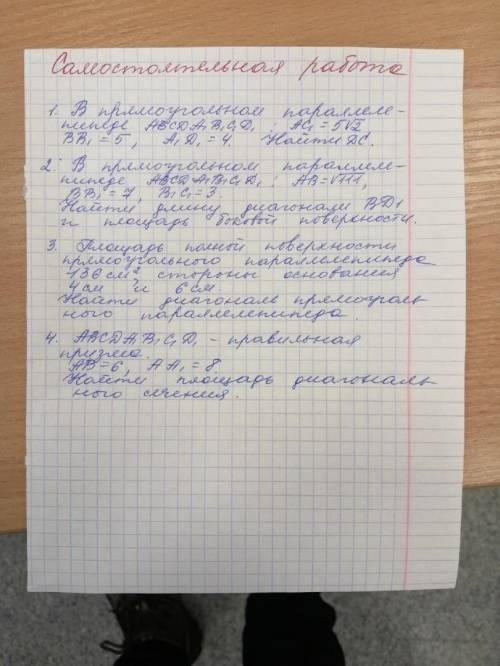 Самостоятельная работа
1. В прямоугольном параллеле-
пипеде ABCDA₁B₁C₁D₁ ; AC₁ = 5√2
BB₁ = 5, A₁D₁ = 4. Найти DC.
2. В прямоугольном параллеле-
пипеде ABCDA₁B₁C₁D₁ : AB = √111,
BB₁ = 7, B₁C₁ = 3
Найти длину диагонали BD₁
и площадь боковой поверхности.
3. Площадь полной поверхности
прямоугольного параллелепипеда
136 см², стороны основания
4 см и 6 см.
Найти диагональ прямоуголь
ного параллелепипеда.
4. ABCDA₁B₁C₁D₁ - правильная
призма.
AB = 6, AA₁ = 8
Найти площадь диагональ
ного сечения.